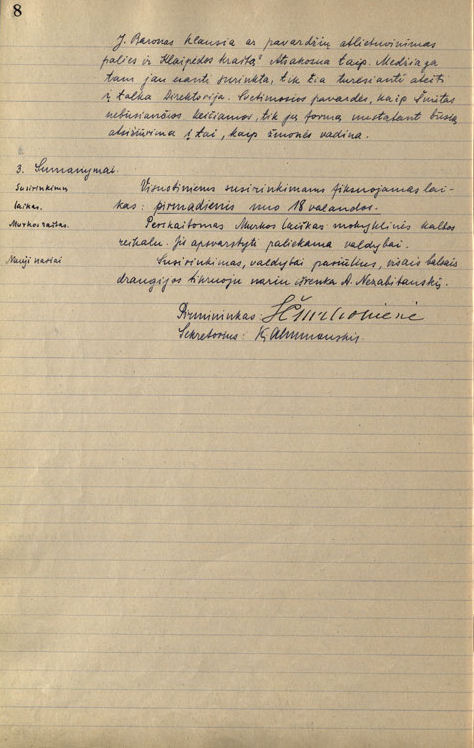 8
J. Baronas klausia ar pavardžių atlietuvinimas
palies ir Klaipėdos kraštą? Atsakoma taip. Medžiaga
tam jau esanti surinkta, tik čia turėsianti ateiti
į talką Direktorija. Svetimosios pavardės, kaip Šmitas
nebūsiančios keičiamos, tik jų formą nustatant būsią
atsižiūrima į tai, kaip žmonės vadina.
3. Sumanymai.
Susirinkimų
laikas.
Visuotiniems susirinkimams fiksuojamas lai-
kas: pirmadienis nuo 18 valandos.
Murkos raštas.
Perskaitomas Murkos laiškas mokyklinės kalbos
reikalu. Jis apsvarstyti paliekama valdybai.
Nauji nariai
Susirinkimas, valdybai pasiūlius, visais balsais
draugijos tikruoju nariu išrenka A. Nezabitauskį.
Pirmininkas:
Sekretorius: